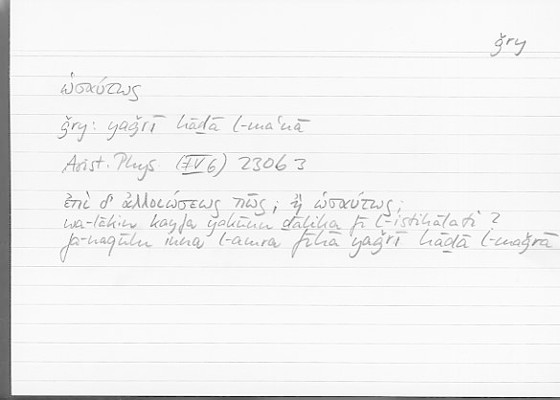 ǧry
ὡσαύτως
ǧry: yaǧrī hāḏā l-maʿnā
Arist. Phys (IV 6) 230b 3
ἐπὶ δ' ἀλλοιώσεως πῶς; ἢ ὡσαύτως;
wa-lākin kayfa yakūnu ḏālika fī l-istiḥālati?
fa-naqūlu inna l-amra fīhā yaǧrī hāḏā l-maǧrā